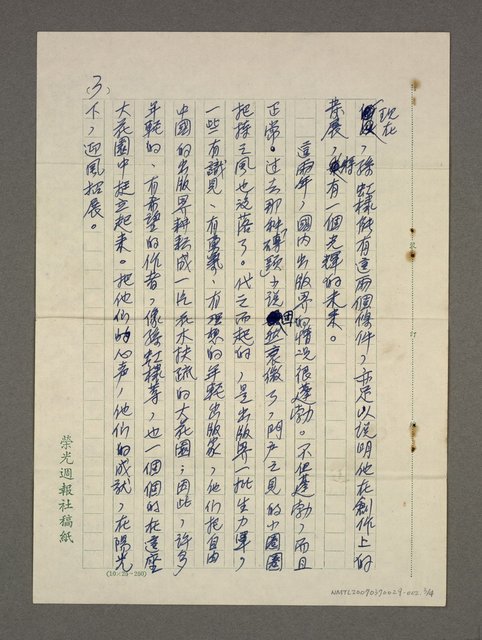 現在，孫虹樣能有這兩個條件，亦足以說明他在創作上的
發展，將有一個光輝的未來。
這兩年，國內出版界的情況很蓬勃。不但蓬勃，而且
正常。過去那種「磚頭」小說已衰微了，門戶之見的小圈圈
把持之風也沒落了。代之而起的，是出版界一批生力軍，
一些有識見、有勇氣、有理想的年輕出版家，他們把自由
中國的出版界耕耘成一片花木扶疏的大花園；因此，許多
年輕的、有希望的作者，像孫虹樣等，也一個個的在這座
大花園中挺立起來。把他們的心声，他們的成就，在陽光
下，迎風招展。
(3)
榮光週報社稿紙
(10×25=250)
裝
訂
NMTL20070370029-002 3/4